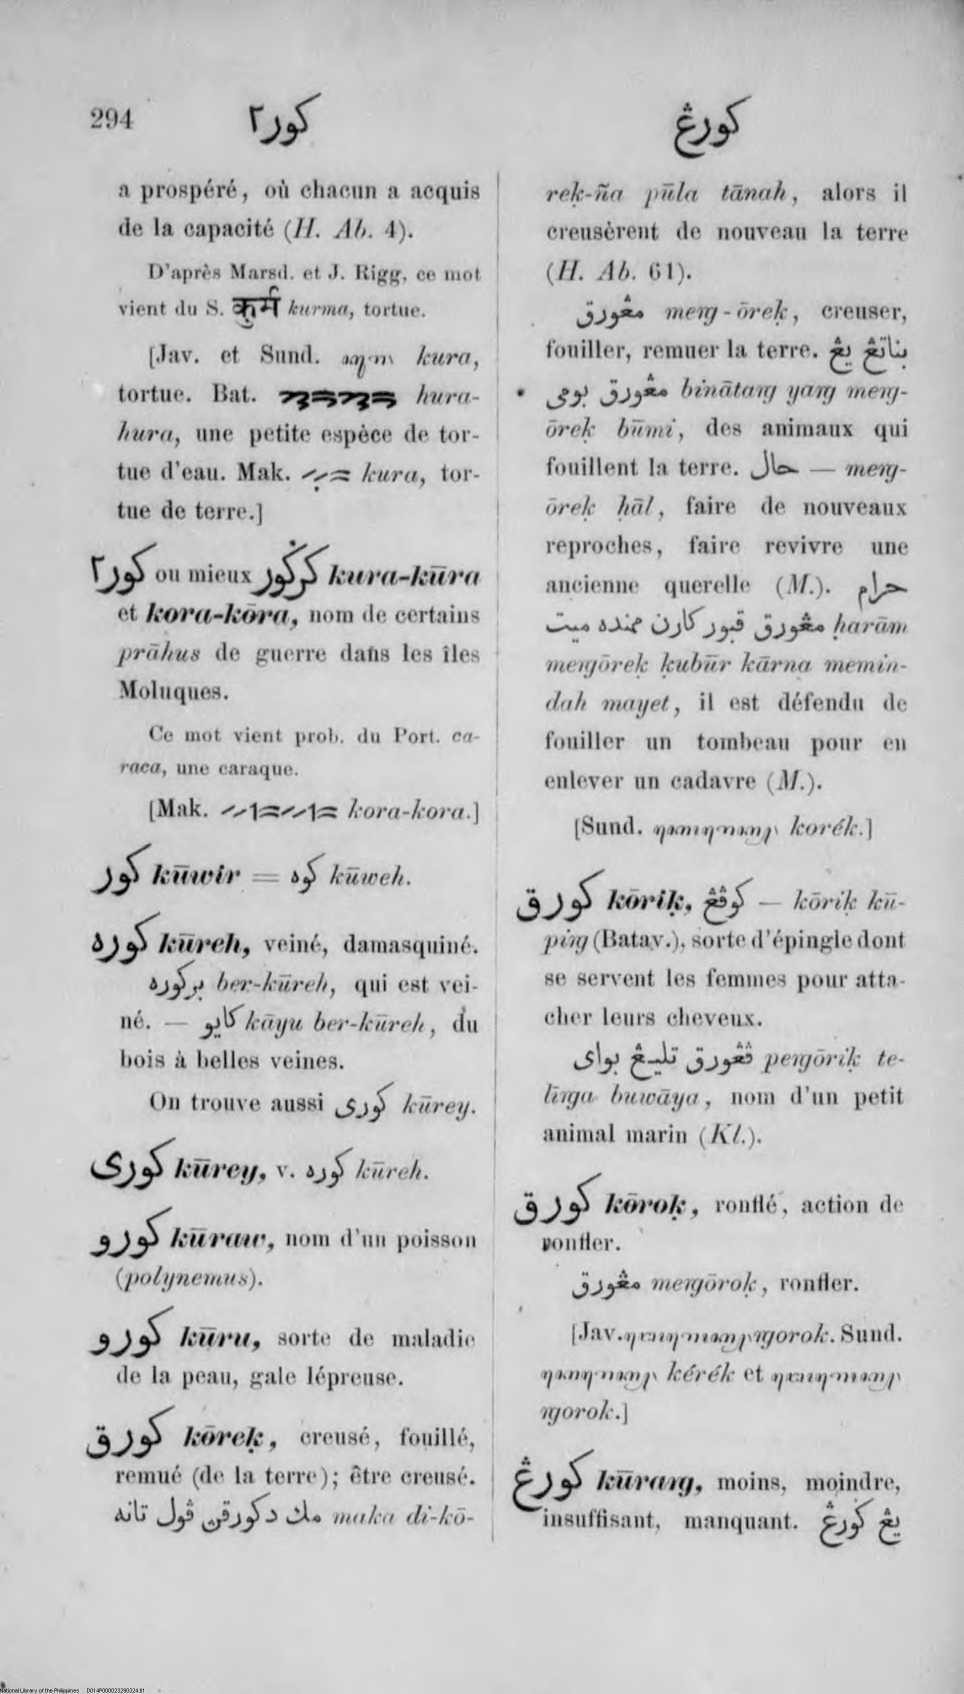 294
كور٢
كورڠ
a prospéré, où chacun a acquis
de la capacité (H. Ab. 4).
D'après Marsd. et J. Rigg, ce mot
vient du S. कुर्म kurma, tortue.
[Jav. et Sund. kura,
tortue. Bat. hura-
hura, une petite espèce de tor-
tue d'eau. Mak. kura, tor-
tue de terre.]
كور٢ ou mieux kura-kūra
et kora-kōra, nom de certains
prāhus de guerre dans les îles
Moluques.
Ce mot vient prob. du Port. ca-
raca, une caraque.
[Mak. kora-kora.]
كور kūwir = كوه kūweh.
كوره kūreh, veiné, damasquiné.
بركوره ber-kūreh, qui est vei-
né. — كايو kāyu ber-kūreh, du
bois à belles veines.
On trouve aussi كوري kūrey.
كوري kūrey, v. كوره kūreh.
كورو kūraw, nom d'un poisson
(polynemus).
كورو kūru, sorte de maladie
de la peau, gale lépreuse.
كورق kōreḳ, creusé, fouillé,
remué (de la terre); être creusé.
مك دكورقن ڤول تانه maka di-kō-
reḳ-ña pūla tānah, alors il
creusèrent de nouveau la terre
(H. Ab. 61).
مڠورق meṅg-ōreḳ, creuser,
fouiller, remuer la terre. بناتڠ يڠ
مڠورق بومي binātaṅg yaṅg meṅg-
ōreḳ būmi, des animaux qui
fouillent la terre. حال — meṅg-
ōreḳ ḥāl, faire de nouveaux
reproches, faire revivre une
ancienne querelle (M.). حرام
مڠورق قبور كارن ممنده ميت ḥarām
meṅgōreḳ ḳubūr kārna memin-
dah mayet, il est défendu de
fouiller un tombeau pour en
enlever un cadavre (M.).
[Sund. korék.]
كورق kōriḳ, كوڤڠ — kōriḳ kū-
piṅg (Batav.), sorte d'épingle dont
se servent les femmes pour atta-
cher leurs cheveux.
ڤڠورق تليڠ بواي peṅgōriḳ te-
līṅga buwāya, nom d'un petit
animal marin (Kl.).
كورق kōroḳ, ronflé, action de
ronfler.
مڠورق meṅgōroḳ, ronfler.
[Jav. ṅgorok. Sund.
kérék et
ṅgorok.]
كورڠ kūraṅg, moins, moindre,
insuffisant, manquant. يڠ كورڠ
National Library of the Philippines